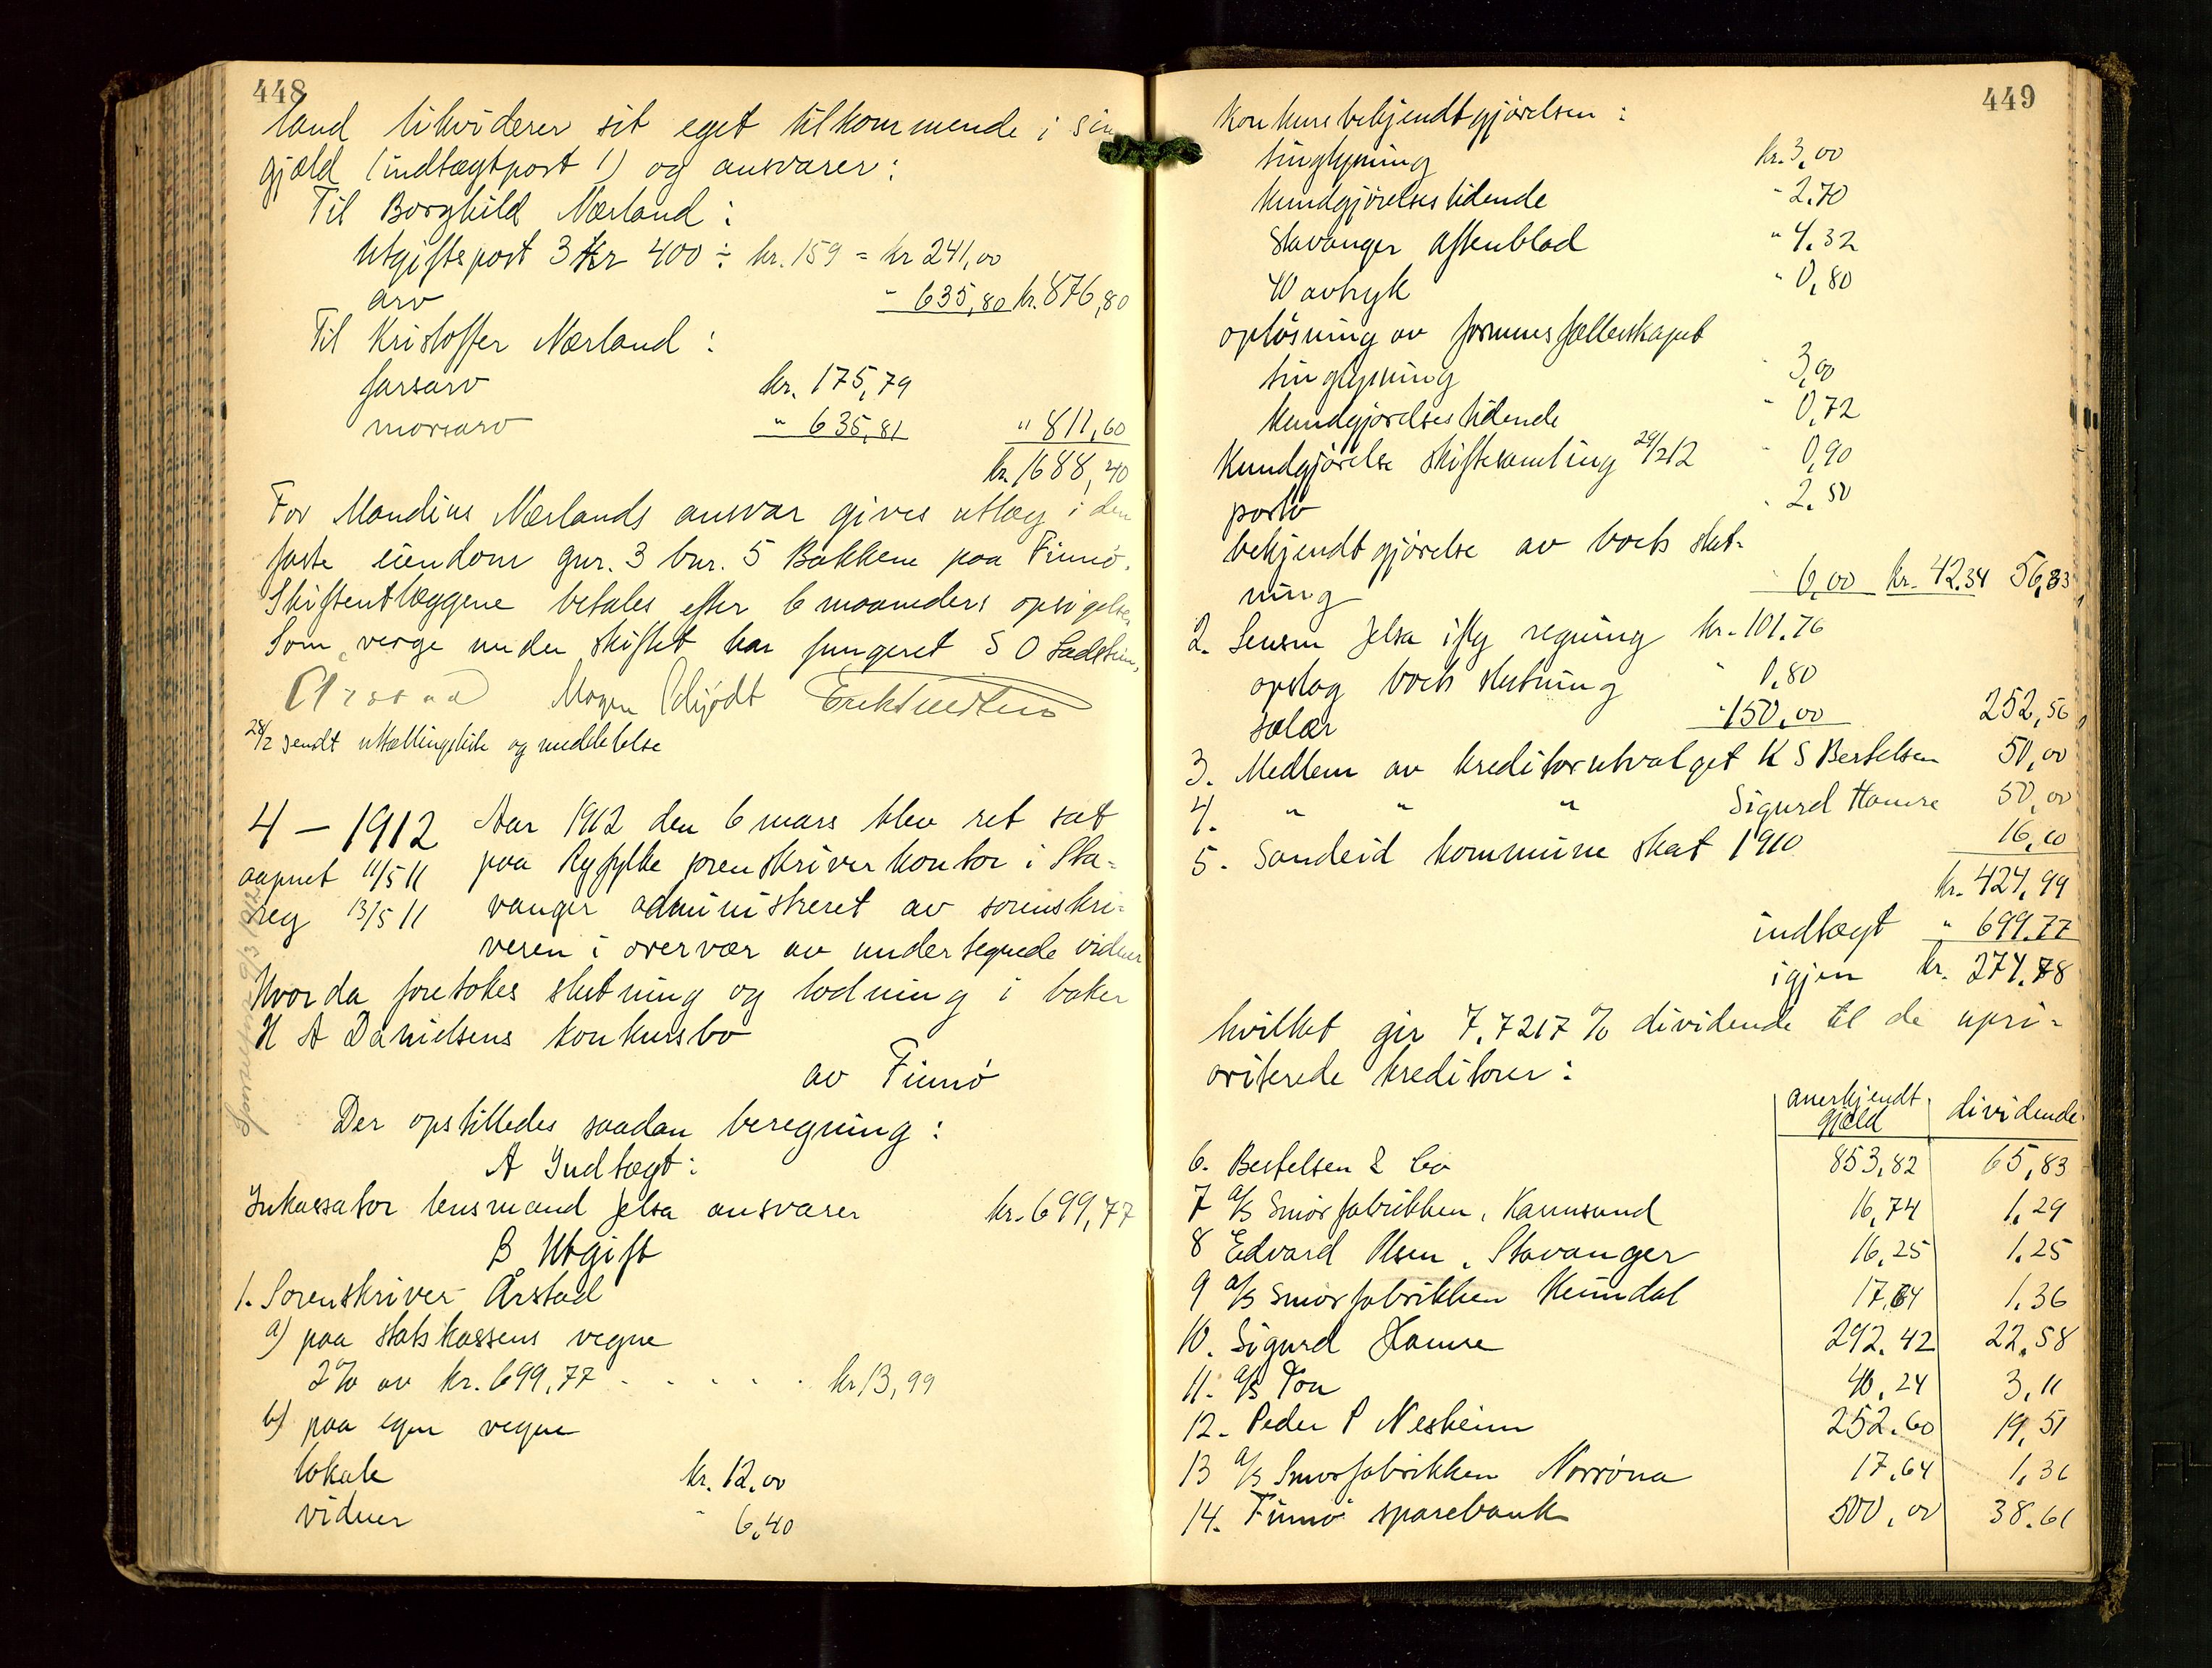 448
land likviderer sit eget tilkommende i sin
gjæld (indtægtpost 1) og ansvarer:
Til Borghild Nærland:
Utgiftspost 3 kr 400 ÷ kr. 159 = kr 241,00
arv " 635,80 kr. 876,80
Til Kristoffer Nærland:
farsarv kr. 175,79
morsarv " 635,81 " 811,60
kr. 1688,40
For Mandius Nærlands ansvar gives utlæg i den
faste eiendom gnr. 3 bnr. 5 Bakkene paa Finnö.
Skifteutlæggene betales efter 6 maaneders opsigelse
Som verge under skiftet har fungeret S O Ladstein,
Årstad Mogen Schjödt
28/2 sendt utlællingsliste og meddelelse
4 – 1912 Aar 1912 den 6 mars blev ret sat
aapnet 11/5 11 paa Ryfylke sorenskriverkontor i Sta-
reg 13/5 11 vanger administreret av sorenskri-
veren i overvær av undertegnede vidner
Hvorda foretokes slutning og lodning i baker
H A Danielsens konkursbo
av Finnö
Der opstilledes saadan beregning:
A Indtægt:
Inkassator lensmand Jelsa ansvarer kr. 699,77
B Utgift
1. Sorenskriver Årstad
a) paa statskassens vegne
2% av kr. 699,77 - - - - - kr 13,99
b) paa egne vegne
lokale kr. 12,00
vidner " 6,40
449
Konkursbekjendtgjörelsen:
tinglysning kr. 3,00
Kundgjörelsestidende " 2.70
Stavanger Aftenblad " 4.32
40 avtryk " 0,80
oplösning av formuesfællesskapet
tinglysning " 3,00
Kundgjörelsestidende " 0,72
Kundgjörelse skiftesamling 29/2 12 " 0,90
porto " 2.50
bekjendtgjörelse av boets slut-
ning " 6,00 kr. 42.34 56,33
2. Lensm Jelsa iflg regning kr. 101.76
opslag boets slutning " 0,80
salær " 150,00 252,56
3. Medlem av kreditorutvalget K S Bertelsen 50,00
4. " " " Sigurd Hamre 50,00
5. Sandeid kommune skat 1910 16,10
kr. 424,99
indtægt " 699.77
igjen kr. 274.78
hvilket gir 7,7217 % dividende til de upri-
oriterede kreditorer:
anerkjendt gjæld dividende
6. Bertelsen & Co 853,82 65,83
7 a/s Smörfabrikken, Karmsund 16,74 1,29
8 Edvard Olsen, Stavanger 16,25 1.25
9 a/s Smörfabrikken Heimdal 17,64 1.36
10. Sigurd Hamre 292.42 22,58
11. a/s Ton 40,24 3,11
12. Peder P Nesheim 252.60 19,51
13 a/s Smörfabrikken Norröna 17.64 1,36
14. Finnö sparebank 500,00 38.61